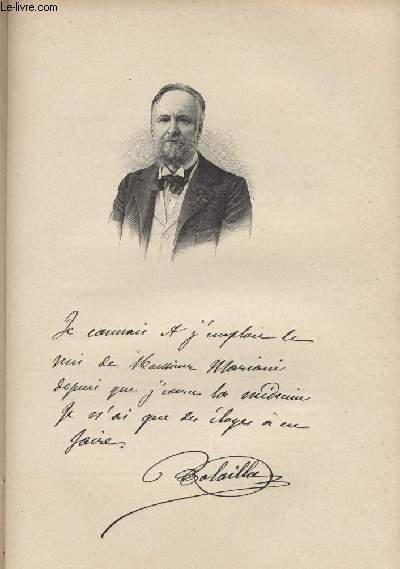 © Le-livre.com
Je connais et j'emploie le
vin de Monsieur Mariani
depuis que j'exerce la médecine
Je n'ai que des éloges à en
faire.